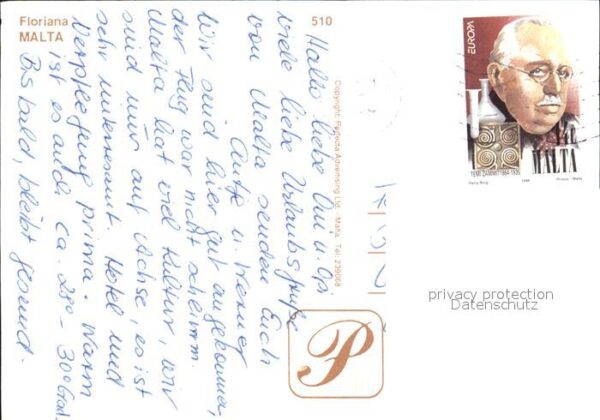 Floriana
MALTA
510
Hallo liebe Omi u. Opi
viele liebe Urlaubsgrüße
von Malta senden Euch
Antje u. Werner
Wir sind hier gut angekommen,
der Flug war nicht schlimm.
Malta hat viel Kultur, wir
sind nur auf Achse, es ist
sehr interessant. Hotel und
Verpflegung prima. Warm
ist es auch ca. 28° - 30° Grad.
Bis bald, bleibt gesund.
Copyright: Perfecta Advertising Ltd. - Malta. Tel: 239068
P
EUROPA
MALTA
TEMI ZAMMIT 1864-1935
privacy protection
Datenschutz